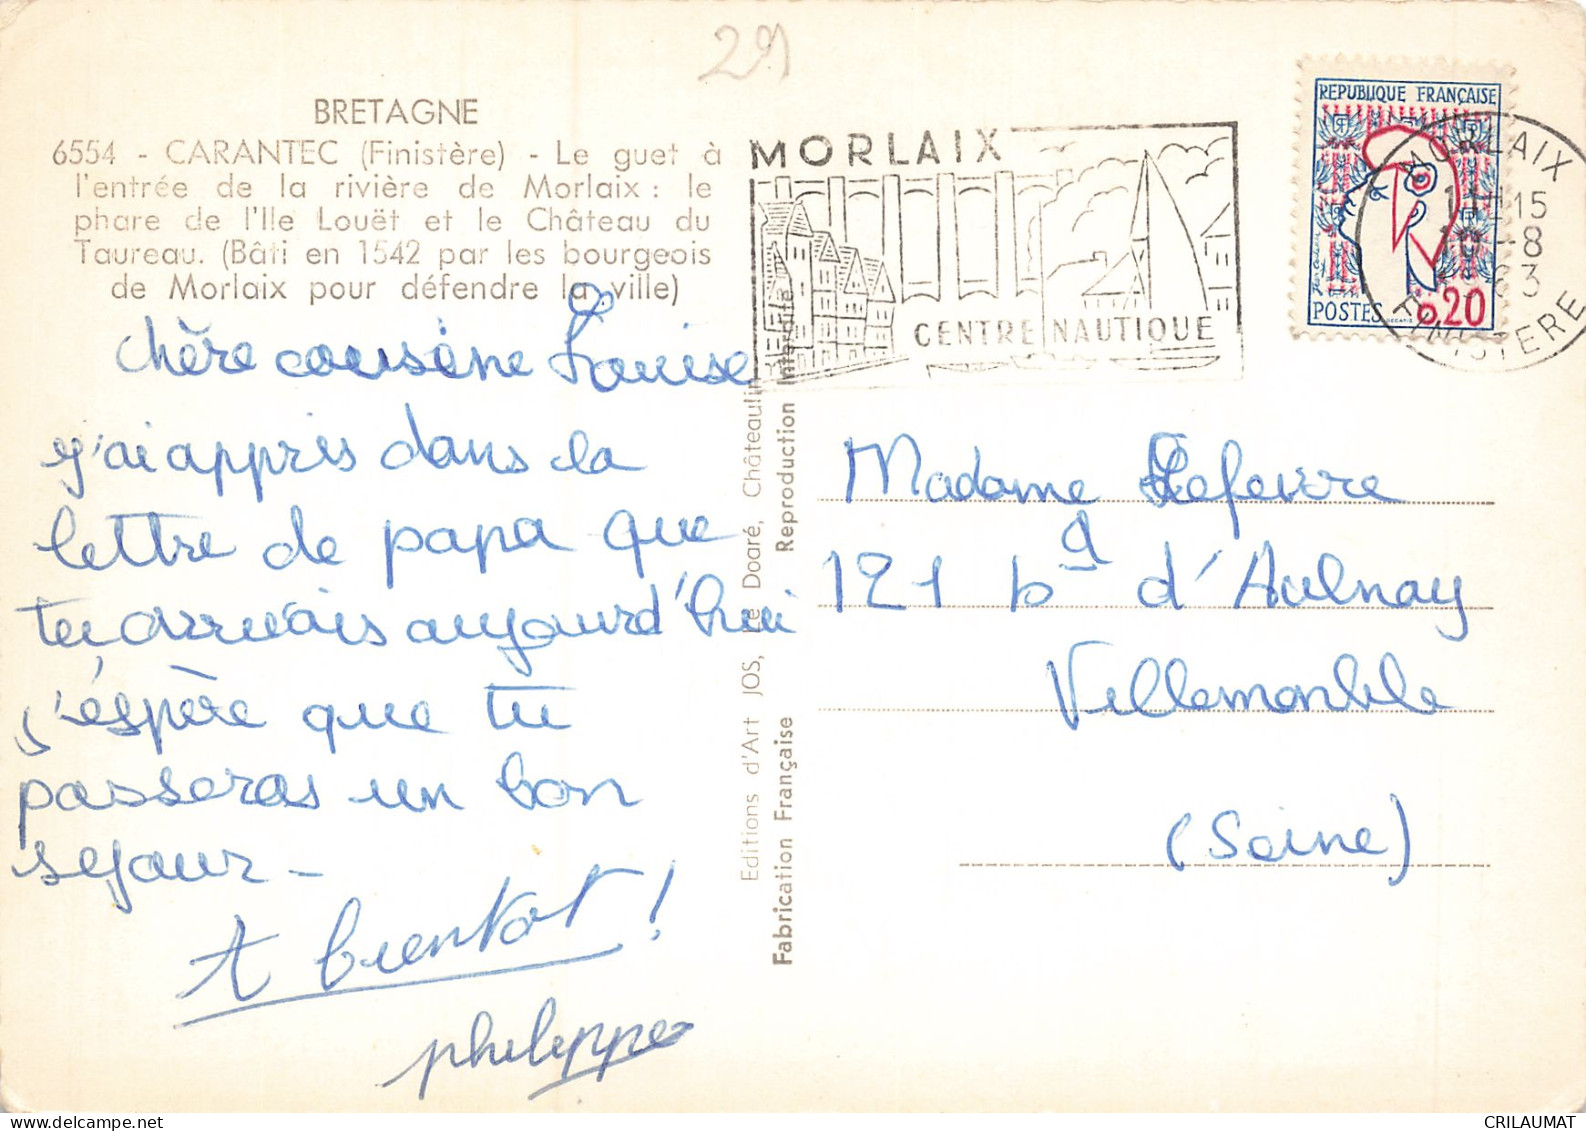 29
BRETAGNE
6554 - CARANTEC (Finistère) - Le guet à
l'entrée de la rivière de Morlaix : le
phare de l'Ile Louët et le Château du
Taureau. (Bâti en 1542 par les bourgeois
de Morlaix pour défendre la ville)
chère cousine Louise
j'ai appris dans la
lettre de papa que
tu arrivais aujourd'hui
j'éspère que tu
passeras un bon
sejour -
A bientot !
philippe
Editions d'Art JOS, Le Doaré, Châteaulin
Fabrication Française
Reproduction Interdite
MORLAIX
CENTRE NAUTIQUE
REPUBLIQUE FRANÇAISE
POSTES
0,20
MORLAIX
15
-8
63
FINISTERE
Madame Lefevre
121 bd d'Aulnay
Villemonble
(Seine)
CRILAUMAT